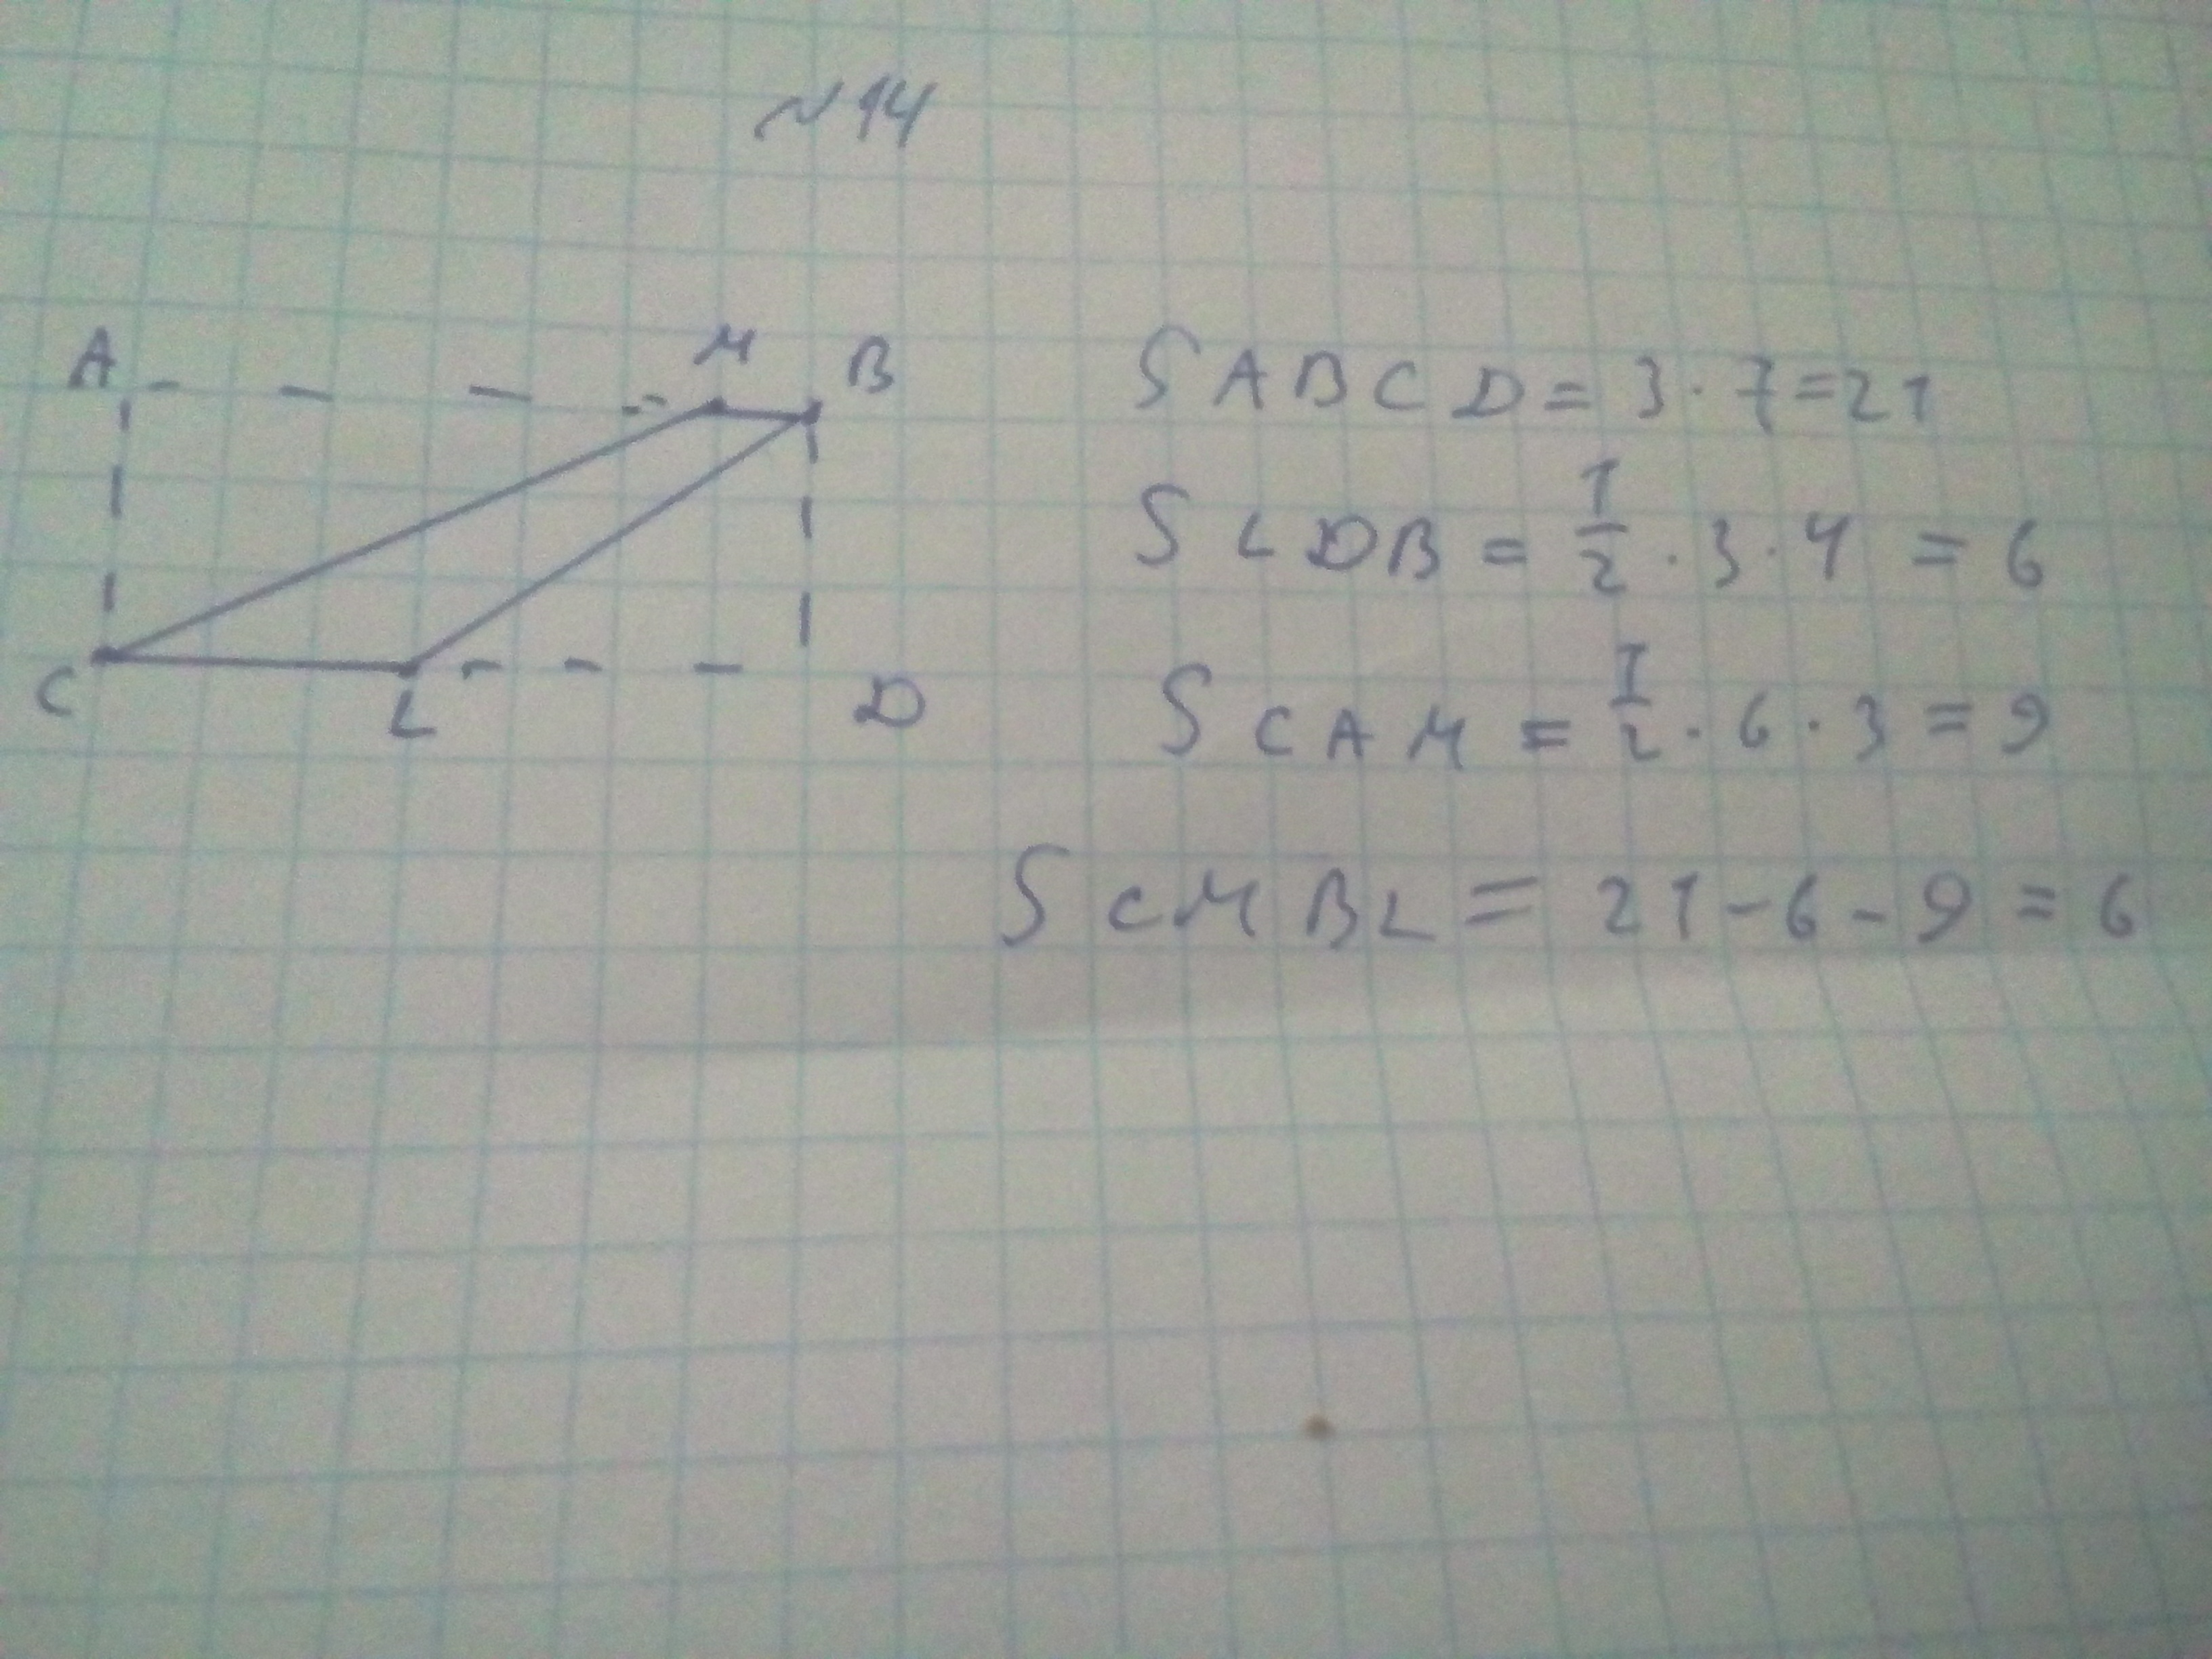 ~ 14
A M B
C L D
S ABCD = 3 · 7 = 21
S LDB = 1/2 · 3 · 4 = 6
S CAM = 1/2 · 6 · 3 = 9
S CMBL = 21 - 6 - 9 = 6